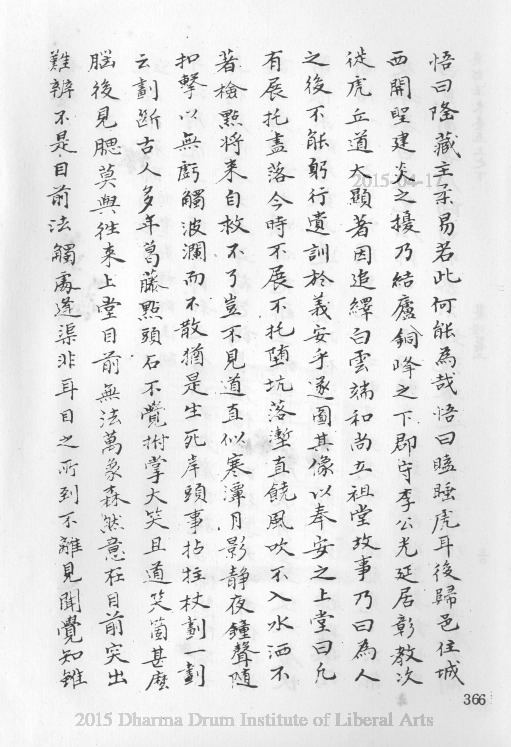 悟曰隆藏主柔易若此何能為哉悟曰瞌睡虎耳後歸邑住城
西開聖建炎之擾乃結廬銅峰之下郡守李公光延居彰教次
徙虎丘道大顯著因追繹白雲端和尚立祖堂故事乃曰為人
之後不能躬行遺訓於義安乎遂圖其像以奉安之上堂曰凡
有展托盡落今時不展不托墮坑落塹直饒風吹不入水洒不
著檢點將來自救不了豈不見道直似寒潭月影靜夜鐘聲隨
扣擊以無虧觸波瀾而不散猶是生死岸頭事拈拄杖劃一劃
云劃斷古人多年葛藤點頭石不覺拊掌大笑且道笑箇甚麼
腦後見腮莫與往來上堂目前無法萬象森然意在目前突出
難辨不是目前法觸處逢渠非耳目之所到不離見聞覺知雖
366
2015-04-17
2015 Dharma Drum Institute of Liberal Arts